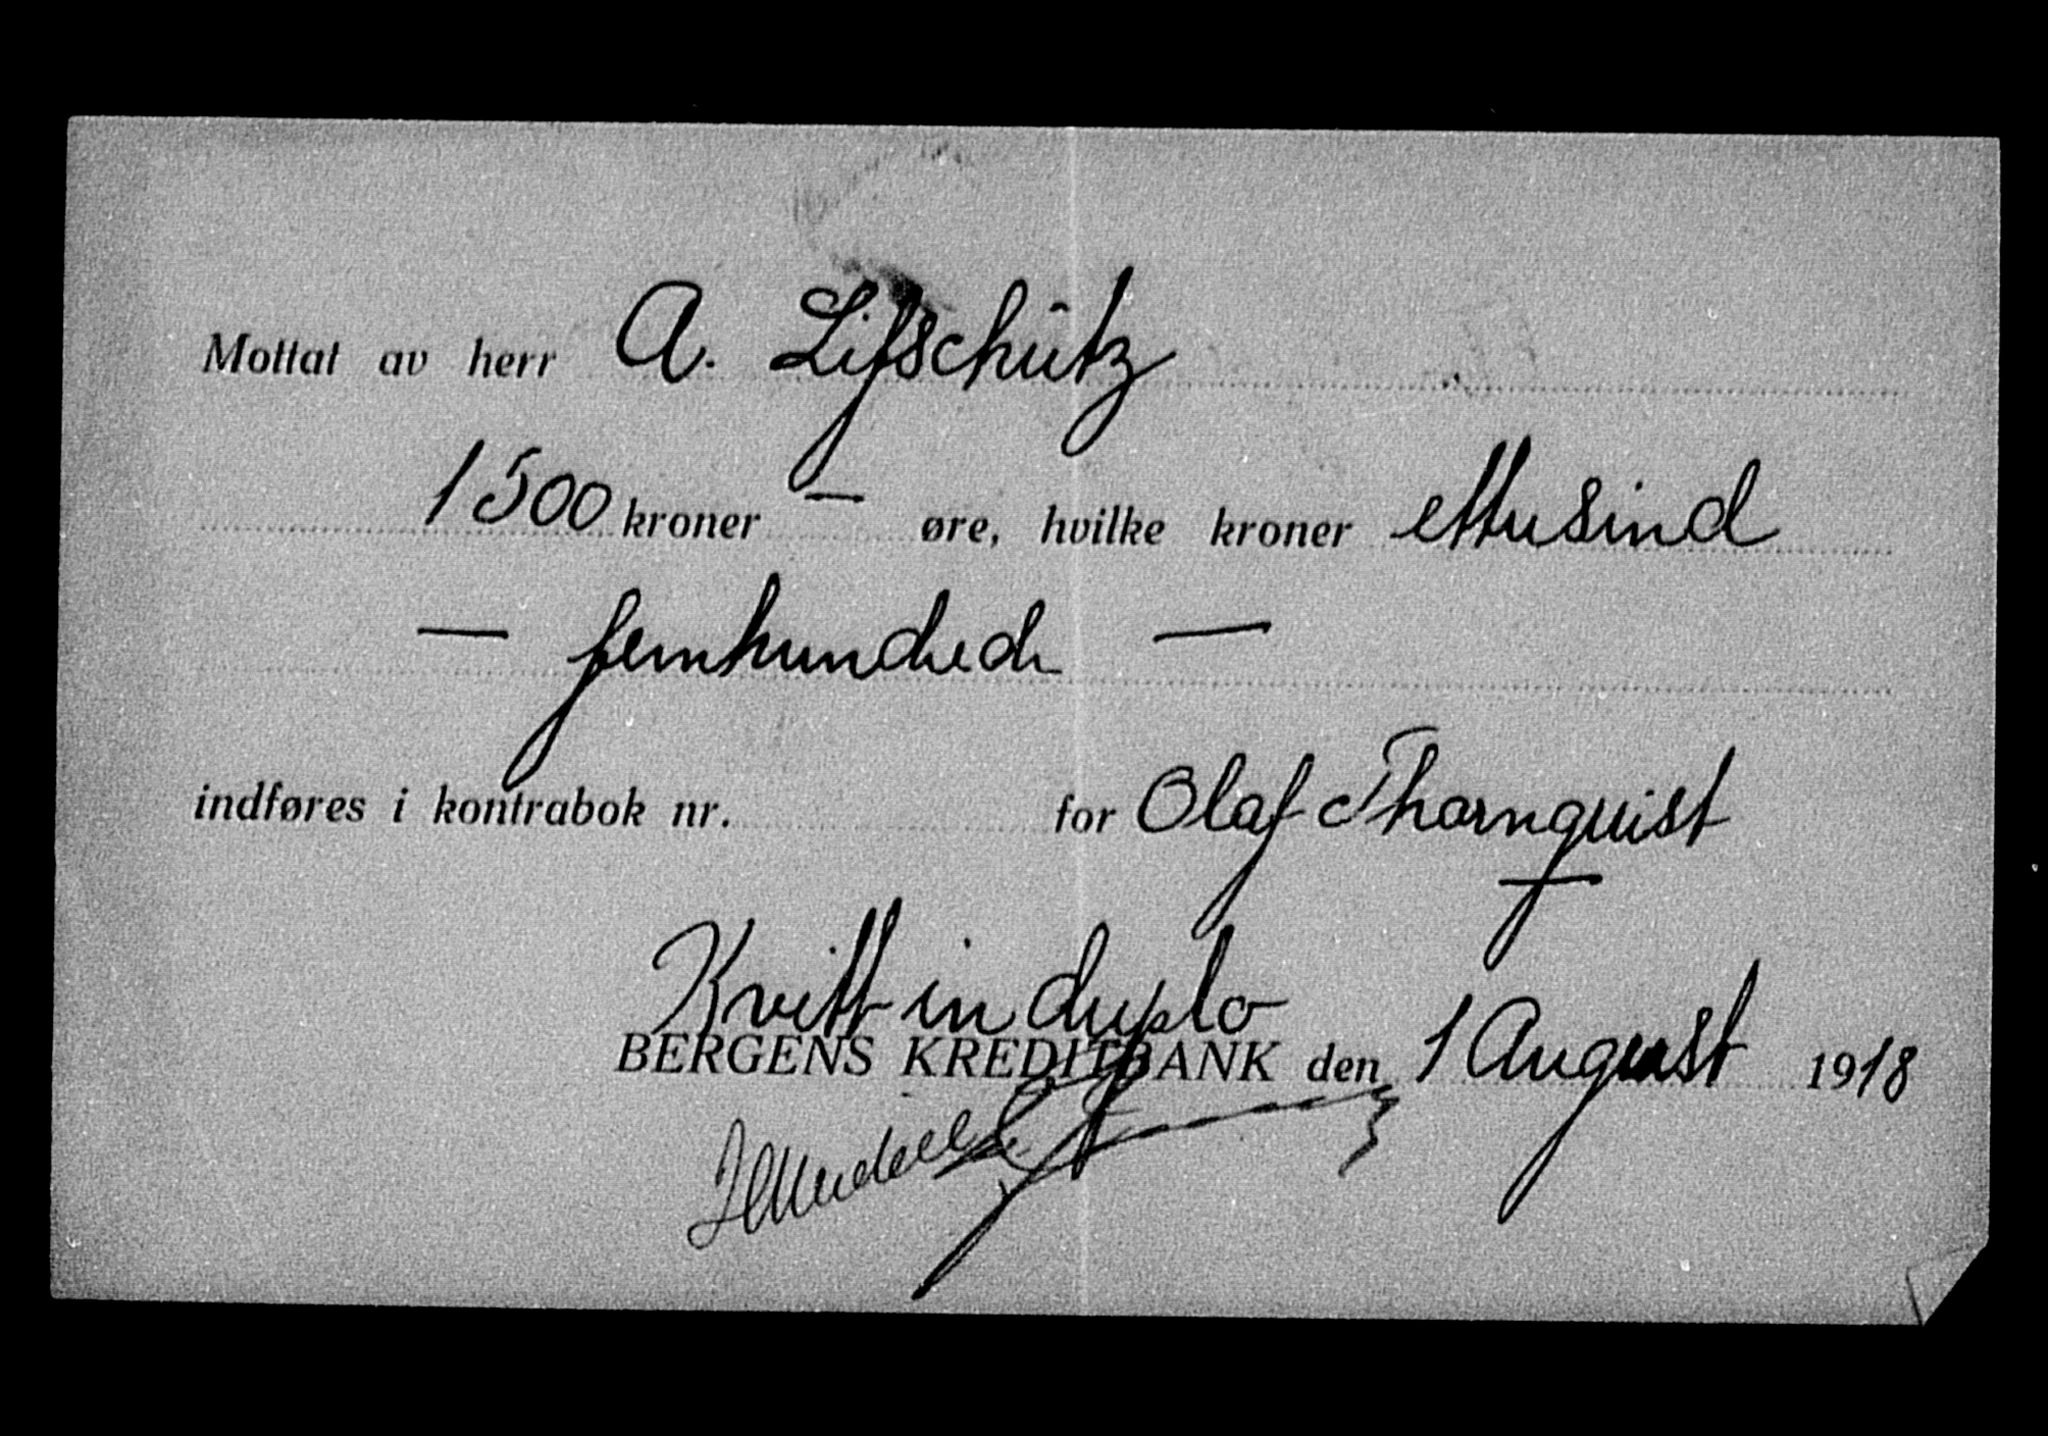 Mottat av herr A. Lifschütz
1500 kroner — øre, hvilke kroner ettusind
— femhundrede —
indføres i kontrabok nr. for Olaf Thornquist
Kvitt in duplo
BERGENS KREDITBANK den 1 August 1918